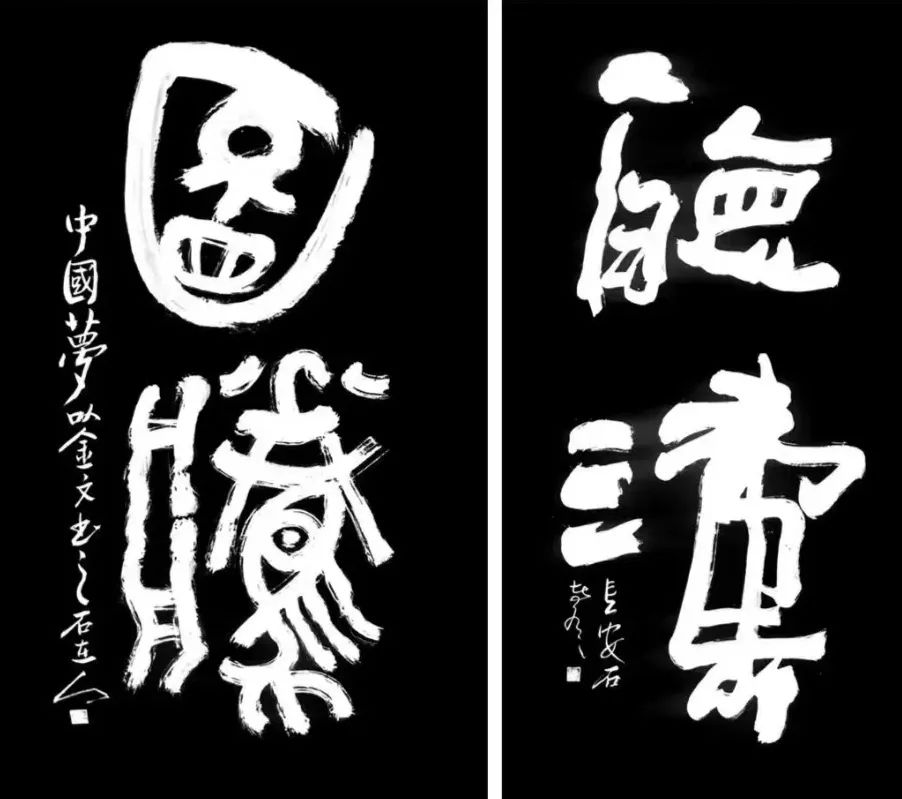 圖騰
中國夢以金文書之石在人
聽濤
長安石